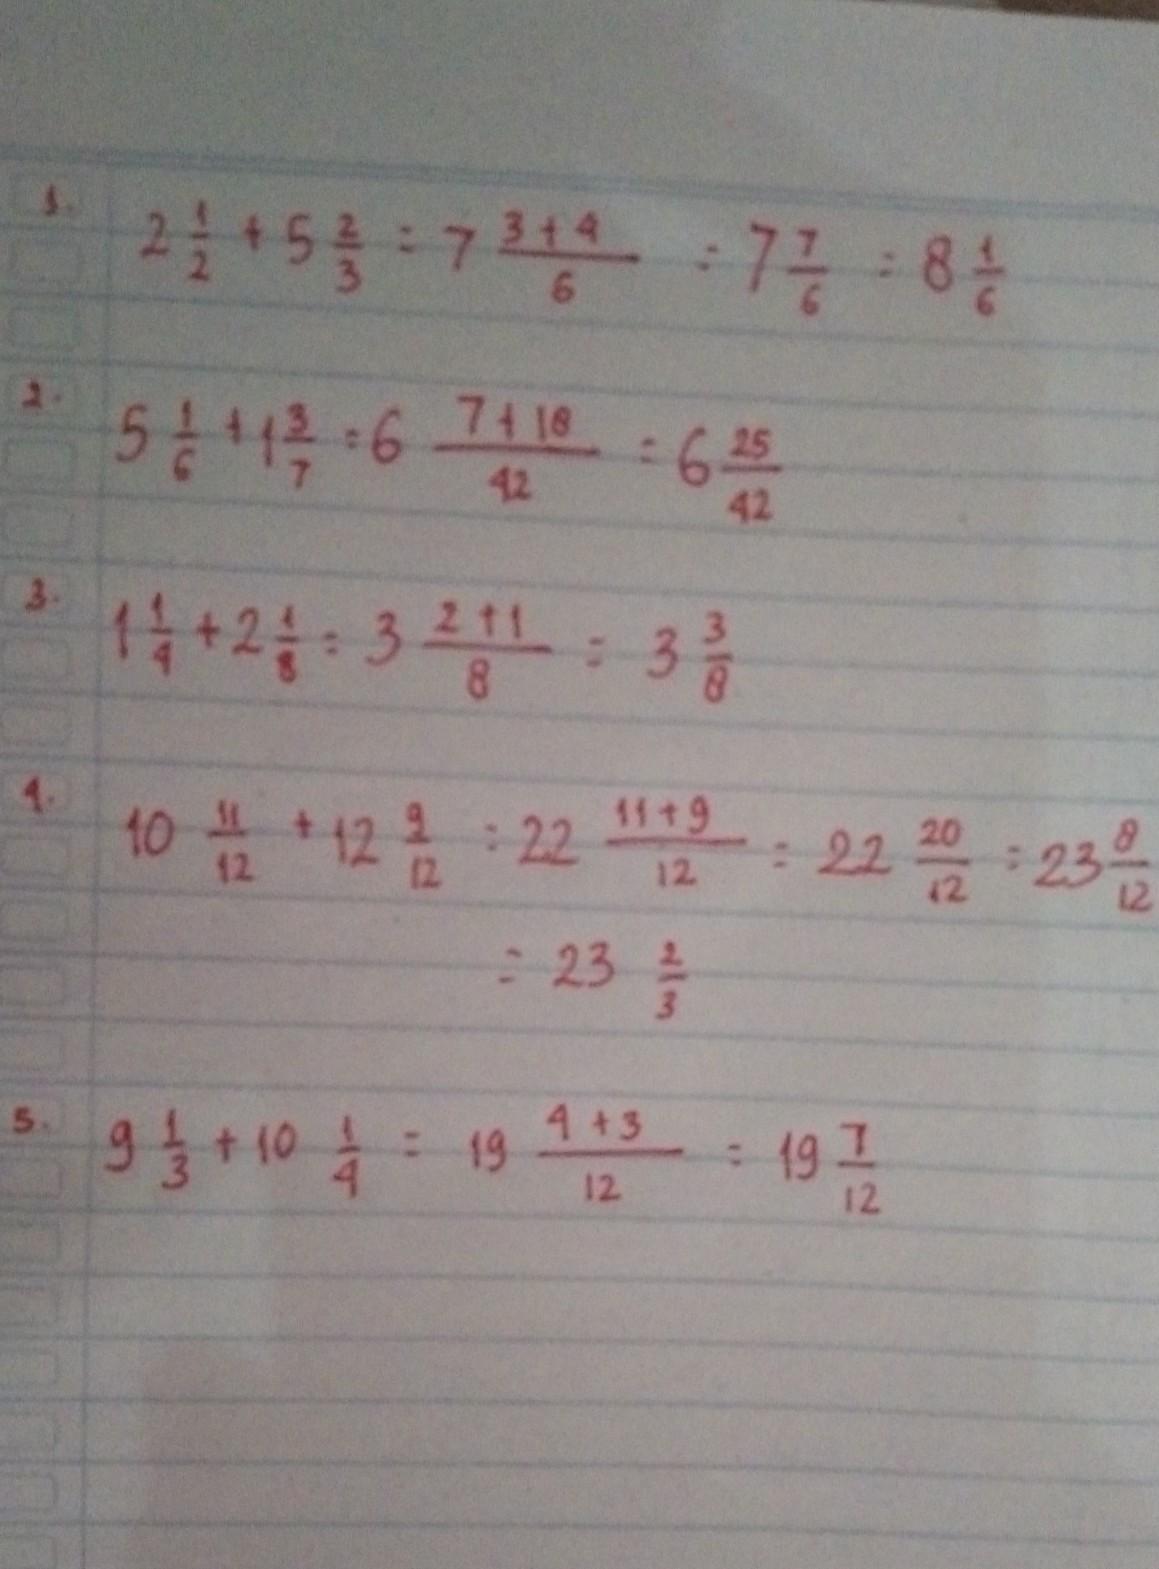 1. 2 1/2 + 5 2/3 = 7 (3+4)/6 = 7 7/6 = 8 1/6
2. 5 1/6 + 1 3/7 = 6 (7+18)/42 = 6 25/42
3. 1 1/4 + 2 1/8 = 3 (2+1)/8 = 3 3/8
4. 10 11/12 + 12 9/12 = 22 (11+9)/12 = 22 20/12 = 23 8/12
= 23 2/3
5. 9 1/3 + 10 1/4 = 19 (4+3)/12 = 19 7/12